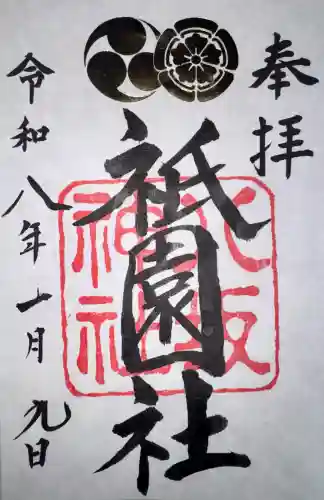 奉拝
八坂神社
祇園社
令和八年一月九日